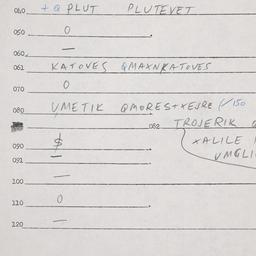 040 + Q PLUT PLUTEVET
050 0
060 —
061 KATOVES QMAXNKATOVES
070 0
080 UMETIK QMORES+XEJRE (/150
082 TROJERIK
090 $ XALILE
091 — UMGLI
100 —
110 0
120 —